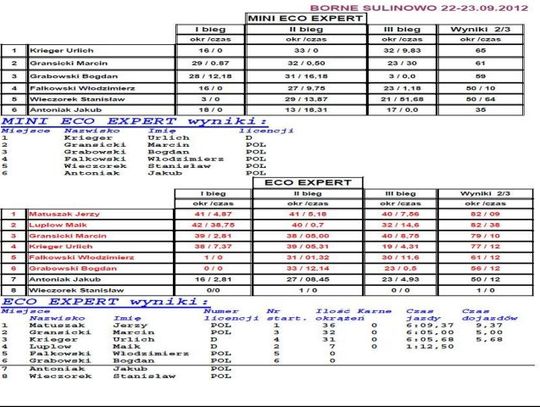 BORNE SULINOWO 22-23.09.2012
MINI ECO EXPERT
I bieg II bieg III bieg Wyniki 2/3
okr /czas okr /czas okr /czas okr /czas
1 Krieger Urlich 16 / 0 33 / 0 32 / 9,83 65
2 Gransicki Marcin 29 / 0,87 32 / 0,50 23 / 30 61
3 Grabowski Bogdan 28 / 12,18 31 / 16,18 3 / 0,0 59
4 Falkowski Włodzimierz 16 / 0 27 / 9,75 23 / 1,18 50 / 10
5 Wieczorek Stanisław 3 / 0 29 / 13,87 21 / 51,68 50 / 64
6 Antoniak Jakub 18 / 0 13 / 18,31 17 / 0,0 35
MINI ECO EXPERT wyniki:
Miejsce Nazwisko Imię licencji
1 Krieger Urlich D
2 Gransicki Marcin POL
3 Grabowski Bogdan POL
4 Falkowski Włodzimierz POL
5 Wieczorek Stanisław POL
6 Antoniak Jakub POL
ECO EXPERT
I bieg II bieg III bieg Wyniki 2/3
okr /czas okr /czas okr /czas okr /czas
1 Matuszak Jerzy 41 / 4,87 41 / 5,18 40 / 7,56 82 / 09
2 Luplow Maik 42 / 38,75 40 / 0,7 32 / 14,6 82 / 38
3 Gransicki Marcin 39 / 2,81 38 / 05,00 40 / 8,75 79 / 10
4 Krieger Urlich 38 / 7,37 39 / 05,31 19 / 4,31 77 / 12
5 Falkowski Włodzimierz 1 / 0 31 / 01,32 30 / 11,6 61 / 12
6 Grabowski Bogdan 0 / 0 33 / 12,14 23 / 0,5 56 / 12
7 Antoniak Jakub 16 / 2,81 27 / 08,45 23 / 4,93 50 / 12
8 Wieczorek Stanisław 0/0 1 / 0 0 / 0 1 / 0
ECO EXPERT wyniki:
Miejsce Numer Nr Ilość Karne Czas Czas
Nazwisko Imię licencji start. okrążeń jazdy dojazdów
1 Matuszak Jerzy POL 1 36 0 6:09,37 9,37
2 Gransicki Marcin POL 3 32 0 6:05,00 5,00
3 Krieger Urlich D 4 31 0 6:05,68 5,68
4 Luplow Maik D 2 7 0 1:12,50
5 Falkowski Włodzimierz POL 5 0
6 Grabowski Bogdan POL 6 0
7 Antoniak Jakub POL
8 Wieczorek Stanisław POL